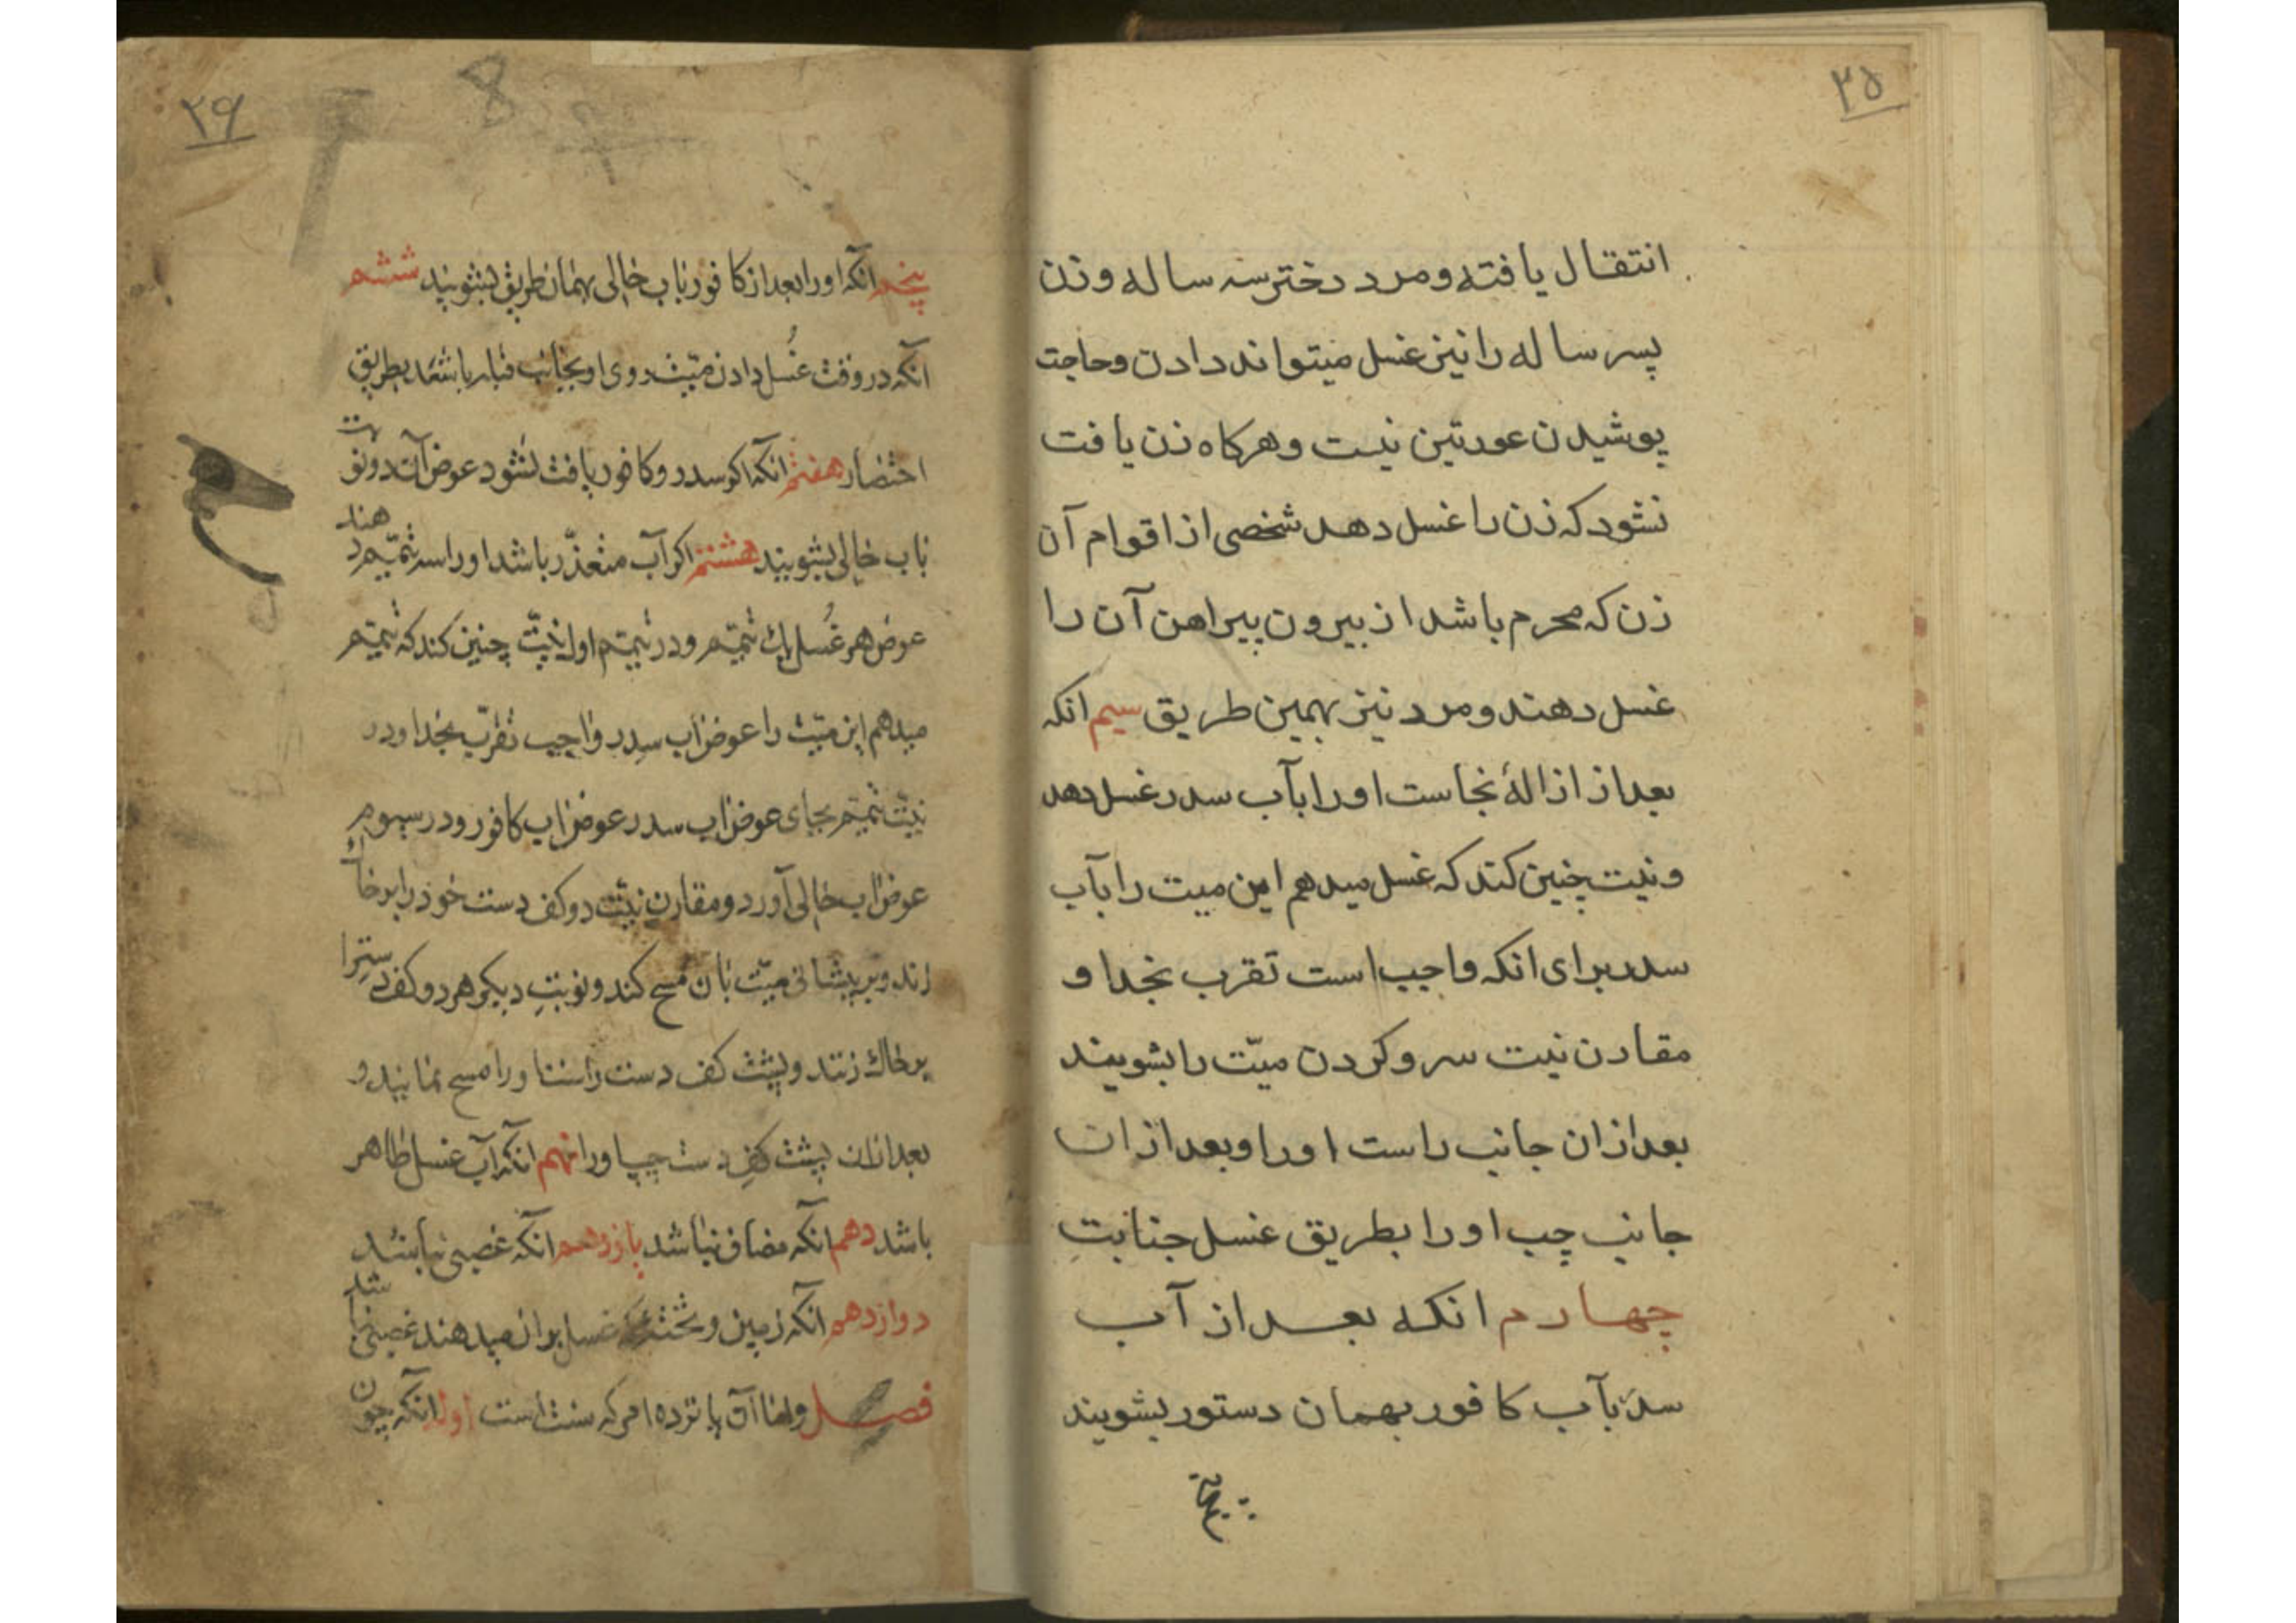 ۲۵
انتقال یافته و مرد دختر سه ساله و زن
پسر ساله را نیز غسل میتواند دادن و حاجت
پوشیدن عورتین نیست و هرکاه زن یافت
نشود که زن را غسل دهد شخصی از اقوام آن
زن که محرم باشد از بیرون پیراهن آن را
غسل دهند و مرد نیز بهمین طریق سیم انکه
بعد از ازالهٔ نجاست او را بآب سدر غسل دهد
و نیت چنین کند که غسل میدهم این میت را بآب
سدر برای انکه واجب است تقرب بخدا و
مقارن نیت سر و کردن میّت را بشویند
بعد از ان جانب راست او را و بعد از ان
جانب چپ او را بطریق غسل جنابتِ
چهارم انکه بعد از آب
سدر بآب کافور بهمان دستور بشویند
پنجم
۲۶
پنجم آنکه او را بعد از کافور باب خالی بهمان طریق بشویند ششم
آنکه در وقت غُسل دادن میّت روی او بجانب قبله باشد بطریق
احتضار هفتم انکه اکر سدر و کافور یافت نشود عوض آن دو نوبت
باب خالی بشویند هشتم اکر آب متعذّر باشد او را سه تیمّم دهند
عوض هر غُسل یک تیمّم و در تیمّم اول نیّت چنین کند که تیمّم
میدهم این میّت را عوض آب سِدر واجب تقرّب بخدا و در
نیّت تیمّم بجای عوض اب سدر عوض اب کافور و در سیوم
عوض اب خالی آورد و مقارن نیّت دو کف دست خود را بر خاک
زند و بر پیشانی میّت بان مسح کند و نوبتِ دیکر هر دو کف دسترا
بر خاک زنند و پشت کف دست راست او را مسح نمایند و
بعد از ان پشت کفِ دست چپ او را نهم آنکه آب غسل طاهر
باشد دهم آنکه مضاف نباشد یازدهم آنکه غصبی نباشد
دوازدهم آنکه زمین و تخته که غسل بر ان میدهند غصبی نباشد
فصل و اما آن پانزده امر که سنت است اول آنکه چون